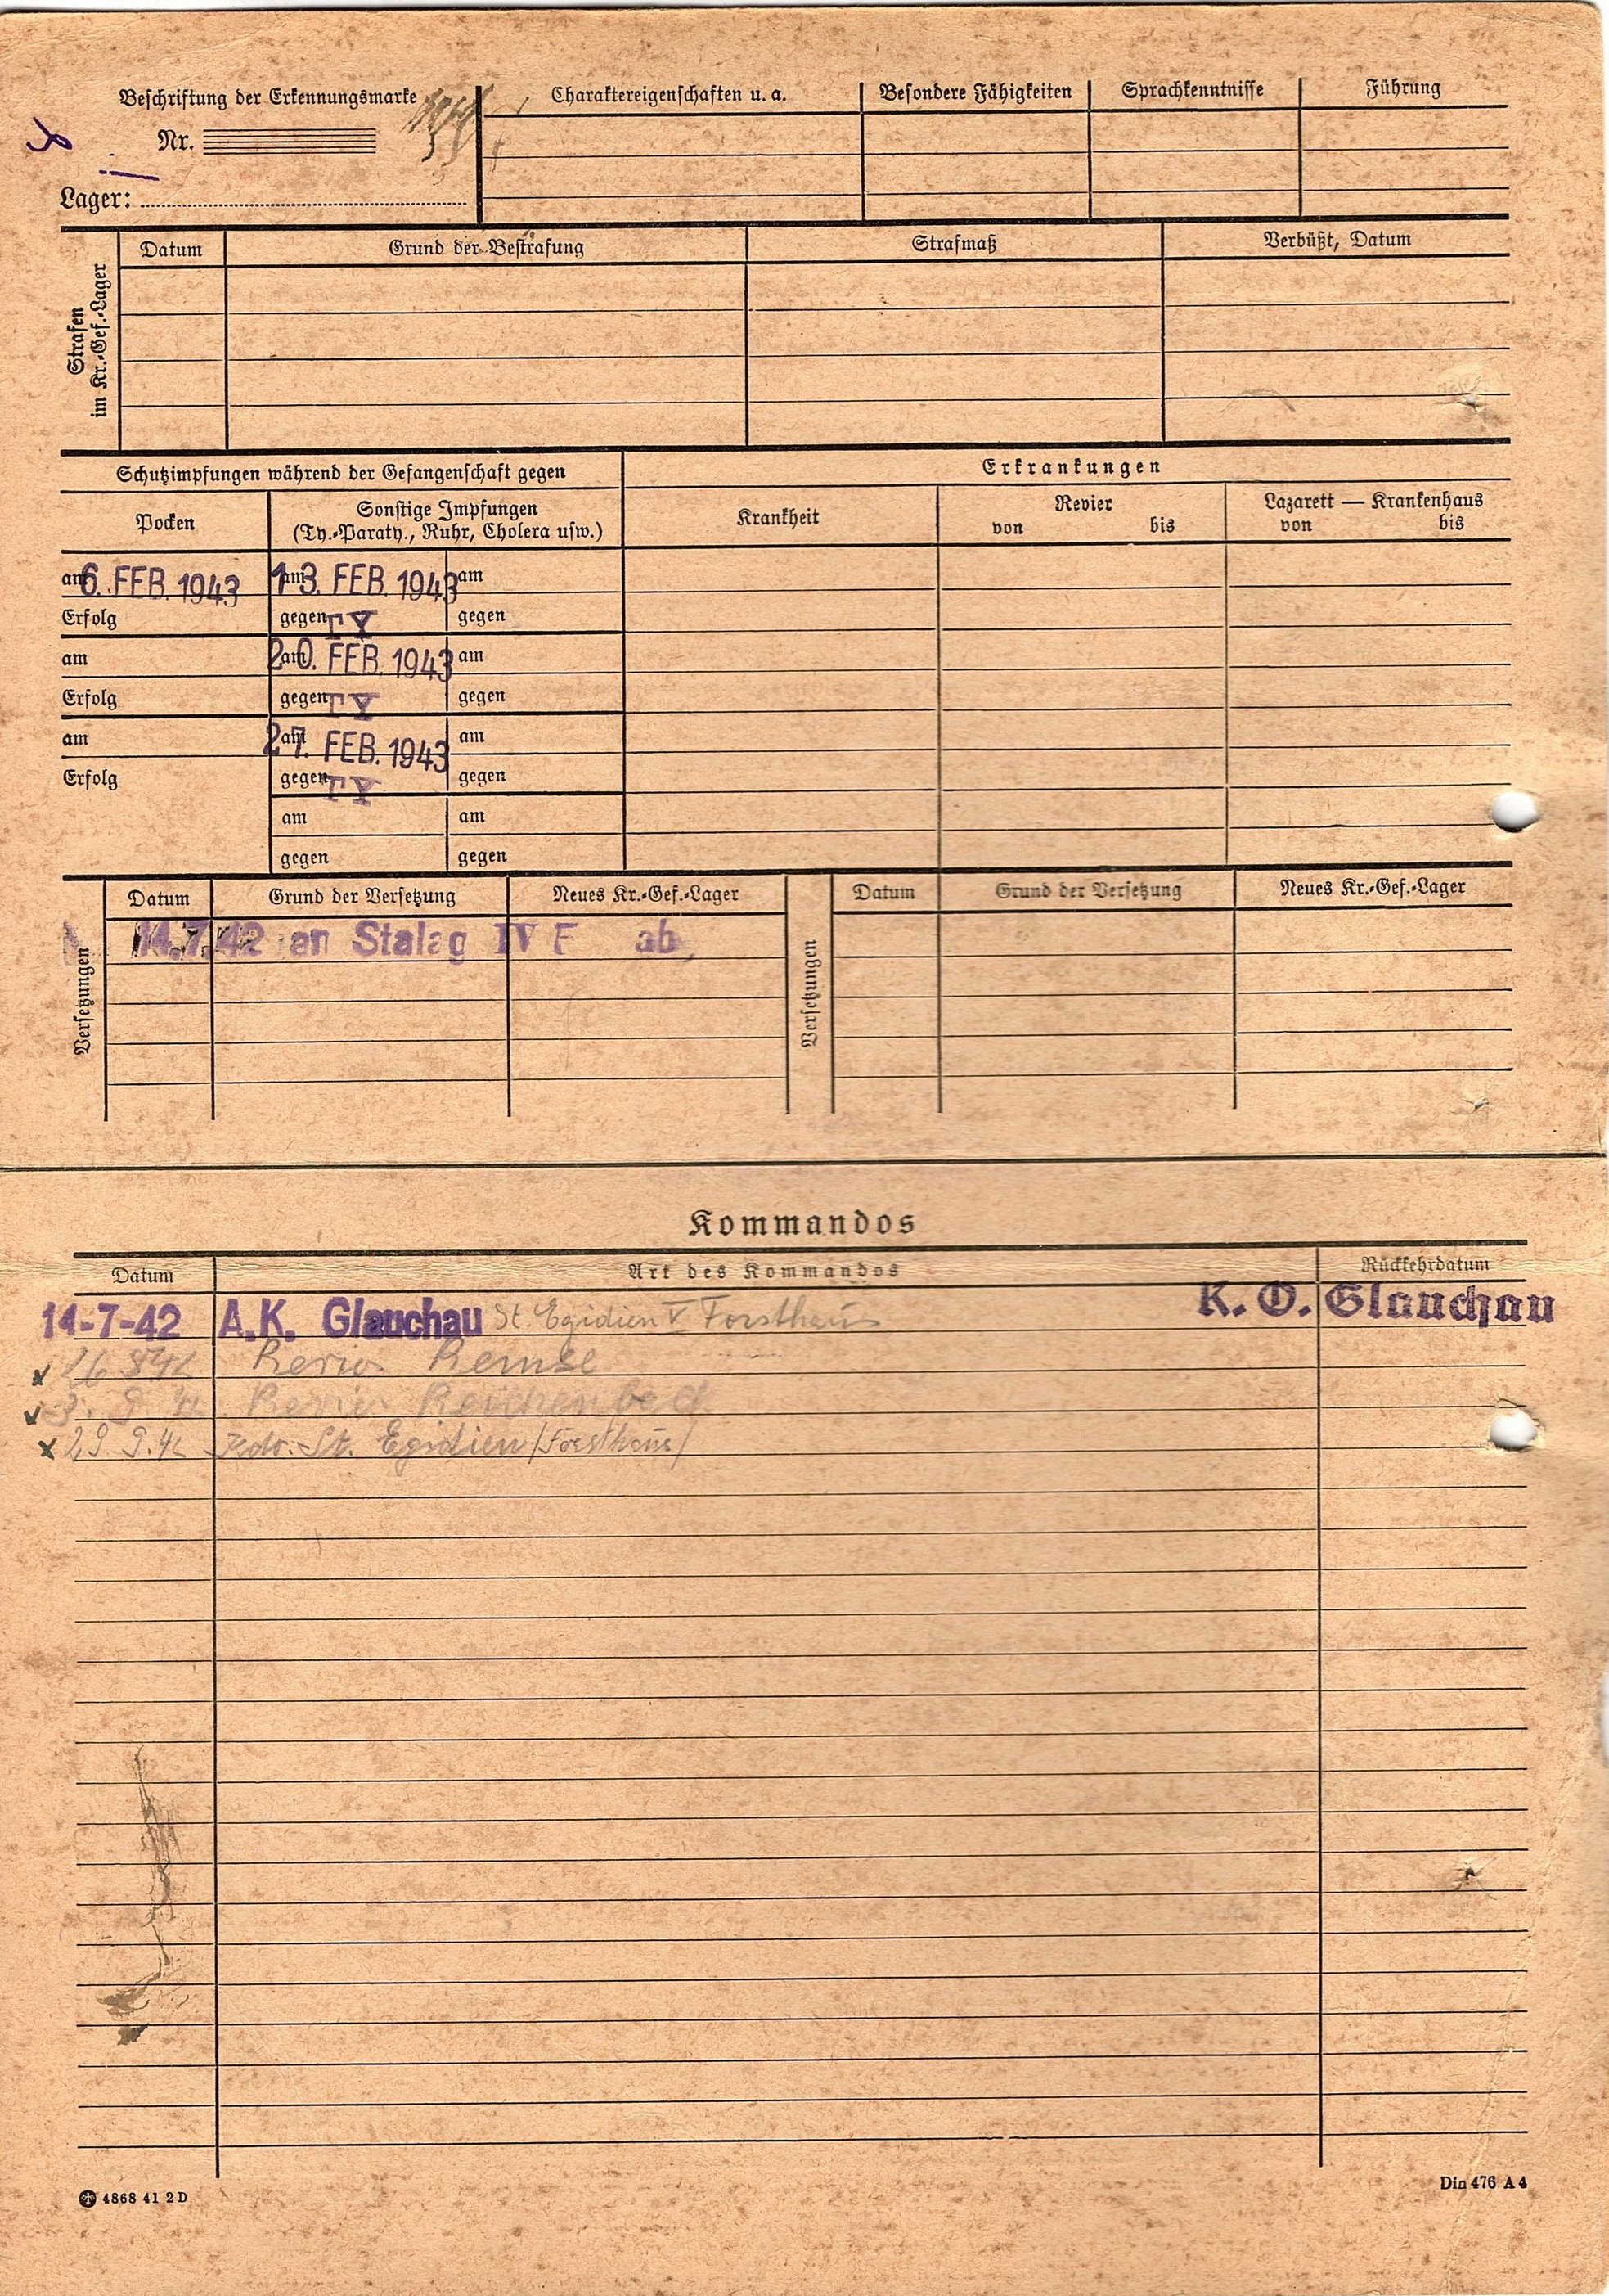 Beschriftung der Erkennungsmarke
Nr.
Lager:
Charaktereigenschaften u. a.
Besondere Fähigkeiten
Sprachkenntnisse
Führung
Strafen
im Kr.-Gef.-Lager
Datum
Grund der Bestrafung
Strafmaß
Verbüßt, Datum
Schutzimpfungen während der Gefangenschaft gegen
Erkrankungen
Pocken
Sonstige Impfungen
(Ty.-Paraty., Ruhr, Cholera usw.)
Krankheit
Revier
von bis
Lazarett — Krankenhaus
von bis
am 6. FEB. 1943 am 13. FEB. 1943 am
Erfolg gegen TY gegen
am am 20. FEB. 1943 am
Erfolg gegen TY gegen
am am 27. FEB. 1943 am
Erfolg gegen TY gegen
am am
gegen gegen
Versetzungen
Datum Grund der Versetzung Neues Kr.-Gef.-Lager
14.7.42 an Stalag IV F ab,
Versetzungen
Datum Grund der Versetzung Neues Kr.-Gef.-Lager
Kommandos
Datum Art des Kommandos Rückkehrdatum
14-7-42 A.K. Glauchau St. Egidien V Forsthaus K. O. Glauchau
Revier Remse
Revier Reichenbach
29 9.42 Kdo. St. Egidien (Forsthaus)
4868 41 2 D
Din 476 A 4